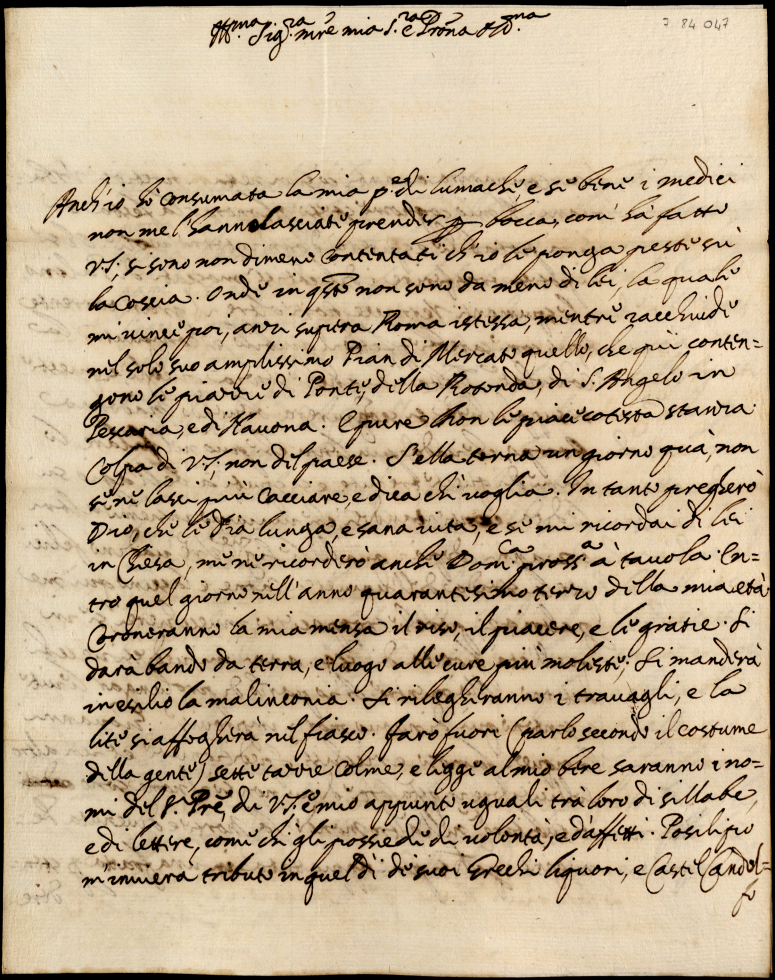 7 84 047
Ill.ma Sig.ra mre mia S.ra e Prona Oss.ma
Anch'io hò consumata la mia p.te di lumache, e se bene i medici
non me l'hanno lasciate prender p bocca, com'hà fatto
V.S., si sono non dimeno contentati ch'io le ponga peste sù
la coscia. Onde in qsto non sono da meno di lei, la quale
mi vince poi, anzi supera Roma istessa, mentre racchiude
nel solo suo amplissimo Pian di Mercato quello, che quì conten=
gono le piazze di Ponte, della Rotonda, di S. Angelo in
Pescaria, e di Navona. E pure non le piace cotesta stanza.
Colpa di V.S., non del paese. S'ella torna un giorno quà, non
se ne lassi più cacciare, e dica chi voglia. In tanto pregherò
Dio, che le dia lunga, e sana vita, e se mi ricordai di lei
in Chiesa, me ne ricorderò anche Dom.ca pross.a à tavola. En=
tro quel giorno nell'anno quarantesimo terzo della mia età
Coroneranno la mia mensa il riso, il piacere, e le gratie. Si
darà bando da terra, e luogo alle cure più moleste; Si manderà
in esilio la malinconia. Si rilegheranno i travagli, e la
lite si affogherà nel fiasco. Farò fuori (parlo secondo il costume
della gente) sette tazze colme, e legge al mio bere saranno i no=
mi del S. Pre, di V.S. e mio appunto uguali trà loro di sillabe,
e di lettere, come chi gli possiede di volontà, e d'affetti. Posilipo
m'invierà tributo in quel dì de suoi Grechi liquori, e Castel Candol=
fo